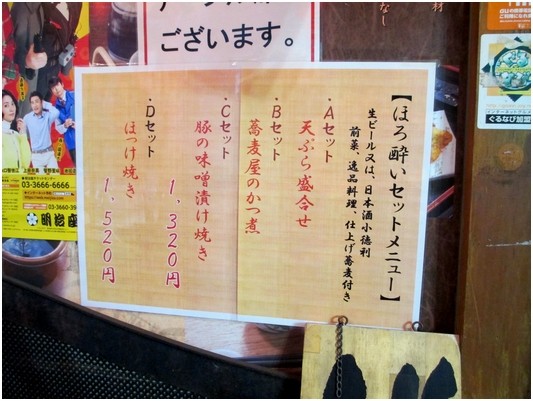 ございます。
【ほろ酔いセットメニュー】
生ビール又は、日本酒小徳利
前菜、逸品料理、仕上げ蕎麦付き
・Aセット
天ぷら盛合せ
・Bセット
蕎麦屋のかつ煮
・Cセット
豚の味噌漬け焼き
1,320円
・Dセット
ほっけ焼き
1,520円
材
なし
03-3666-6666
明治座
ぐるなび加盟